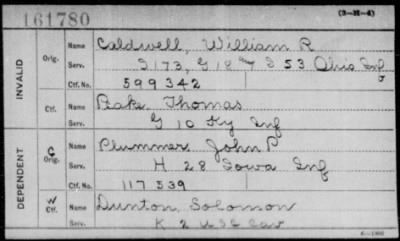 161780
(3-H-4)
INVALID
Orig. Name Caldwell, William R
Serv. I 173, G 18 & I 53 Ohio Inf
Ctf. No. 599342
Ctf. Name Peake Thomas
Serv. G 10 Ky Inf
DEPENDENT
C Orig. Name Plummer John P
Serv. H 28 Iowa Inf
Ctf. No. 117539
W Ctf. Name Dunton, Solomon
Serv. K 2 U S C Cav